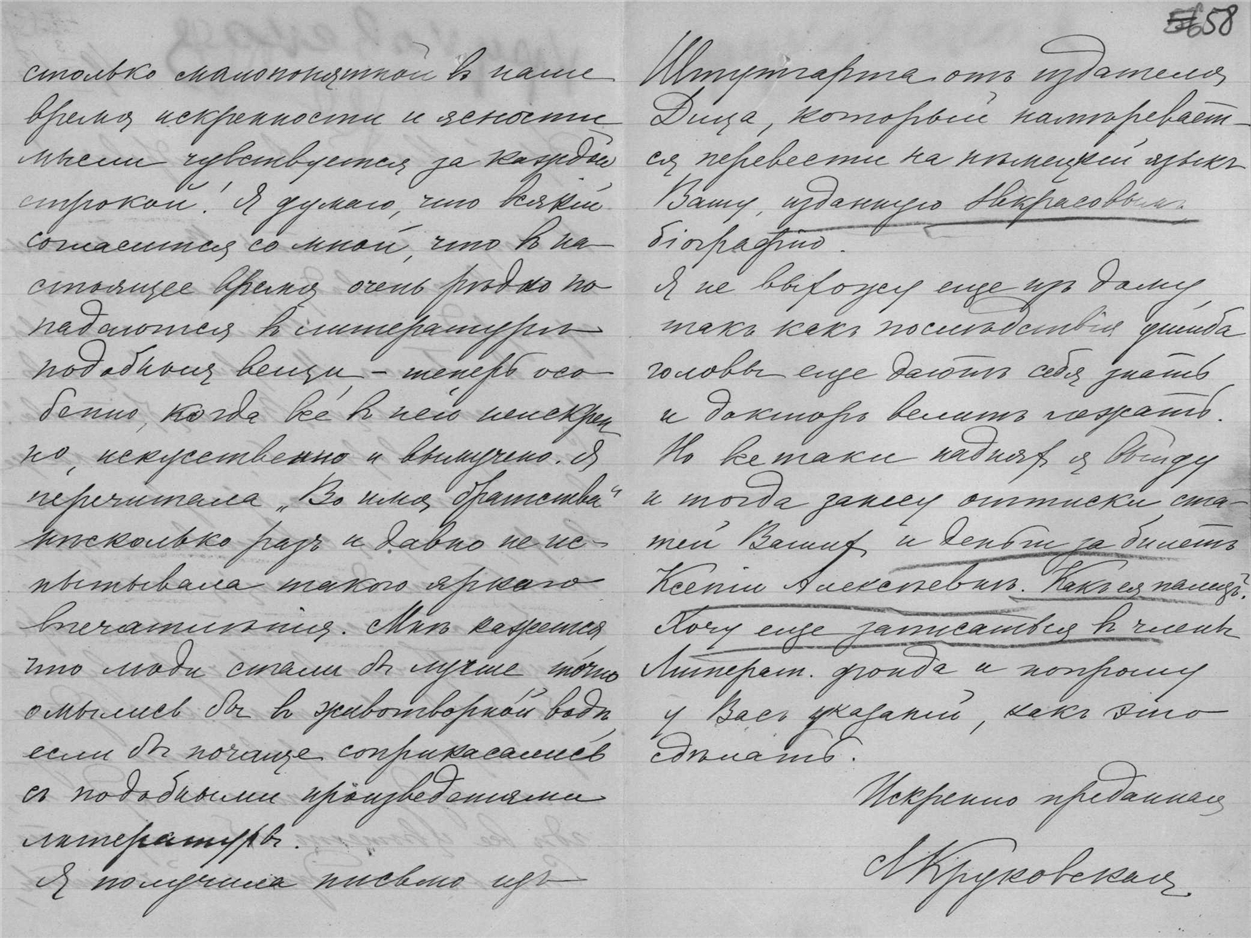 58
столько малопонятной въ наше
время искренности и ясности
мысли чувствуется за каждой
строкой! Я думаю, что всякій
согласится со мной, что въ на-
стоящее время очень рѣдко по
падаются въ литературѣ
подобныя вещи, – теперь осо
бенно, когда все въ ней неискрен
но, искусственно и вымучено. Я
перечитала „Во имя братства“
нѣсколько разъ и давно не ис-
пытывала такого яркаго
впечатлѣнія. Мнѣ кажется
что люди стали бъ лучше точно
омылись бы въ животворной водѣ,
если бъ почаще соприкасались
съ подобными произведеніями
литературы.
Я получила письмо изъ
Штутгарта отъ издателя
Дица, который намѣревает-
ся перевести на нѣмецкій языкъ
Вашу, изданную Некрасовымъ
біографію.
Я не выхожу еще изъ дому
такъ какъ послѣдствія ушиба
головы еще даютъ себя знать
и докторъ велитъ лежать.
Но все таки на дняхъ я выйду
и тогда занесу оттиски ста-
тей Вашихъ и деньги за билетъ
Ксеніи Алексѣевнѣ. Какъ ея палецъ?
Хочу еще записаться въ члены
Литерат. фонда и попрошу
у Васъ указаній, какъ это
сдѣлать.
Искренно преданная
Л Круковская